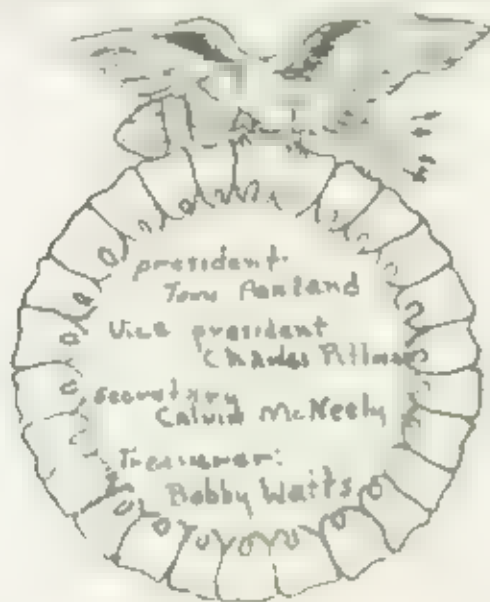 president.
Tom Penland
Vice president
Charles Pittman
secretary
Calvin McNeely
Treasurer:
Bobby Watts